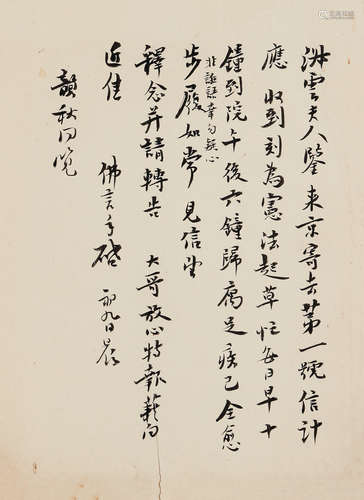 淋雲夫人鑒来京寄去第一號信計
應收到刻為憲法起草忙每日早十
鐘到院午後六鐘歸寓足疾已全愈
非誑語幸勿疑心
步履如常見信望
釋念并請轉告 大哥放心特報藉問
近佳 佛言手啟 初九日晨
韻秋同覽